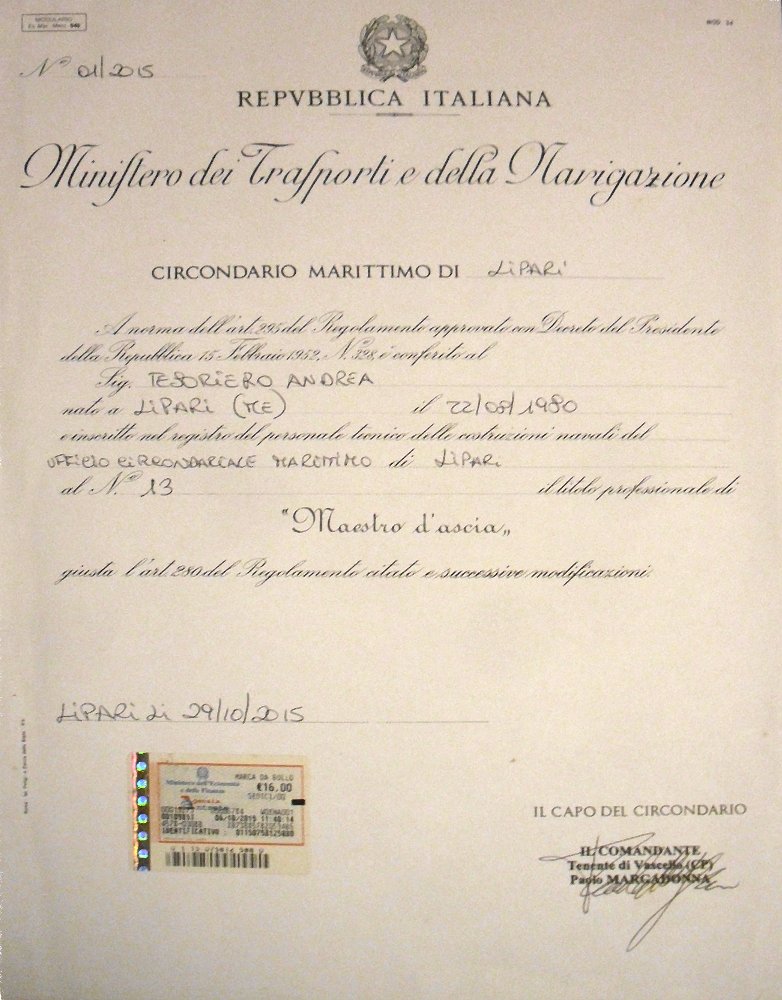 MODULARIO
MOD 34
N° 01/2015
REPVBBLICA ITALIANA
Ministero dei Trasporti e della Navigazione
CIRCONDARIO MARITTIMO DI LIPARI
A norma dell'art. 295 del Regolamento approvato con Decreto del Presidente
della Repubblica 15 Febbraio 1952, N. 328, è conferito al
Sig. TESORIERO ANDREA
nato a LIPARI (ME) il 22/08/1980
e inscritto nel registro del personale tecnico delle costruzioni navali del
UFFICIO CIRCONDARIALE MARITTIMO di LIPARI
al N.° 13 il titolo professionale di
"Maestro d'ascia„
giusta l'art. 280 del Regolamento citato e successive modificazioni.
LIPARI LI 29/10/2015
MARCA DA BOLLO
Ministero dell'Economia
e delle Finanze
€16,00
SEDICI/00
IDENTIFICATIVO : 01150758125080
IL CAPO DEL CIRCONDARIO
IL COMANDANTE
Tenente di Vascello (CP)
Paolo MARGADONNA